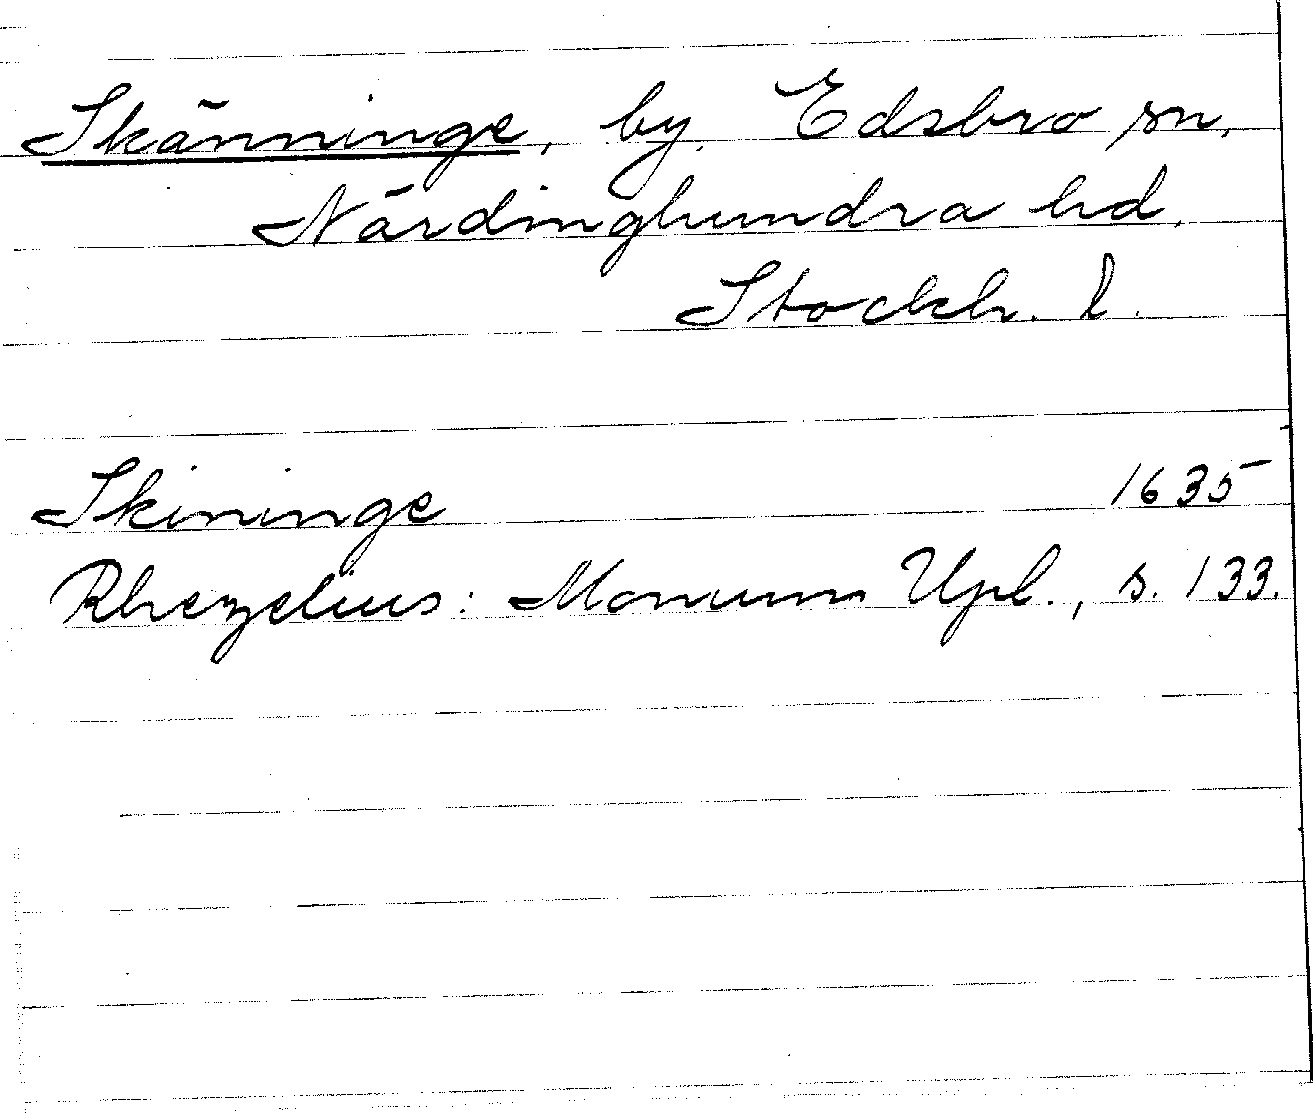 Skänninge, by, Edsbro sn,
Närdinghundra hd,
Stockh. l.
Skininge 1635
Rhezelius: Monum Upl., s. 133.